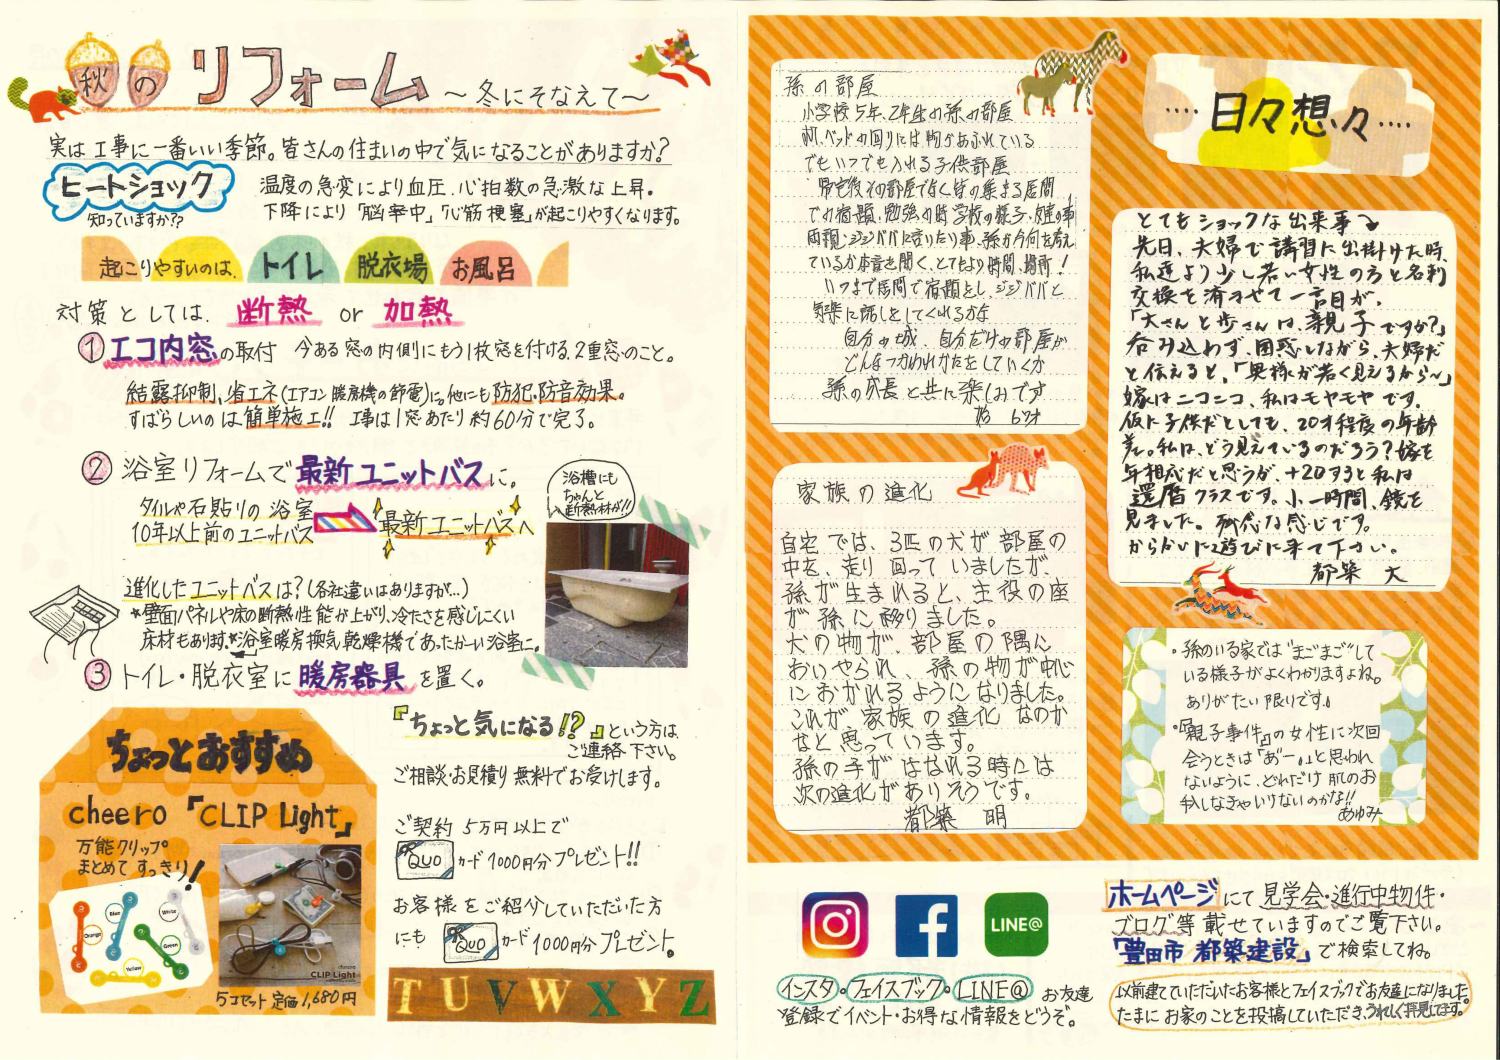 秋のリフォーム ～冬にそなえて～
実は工事に一番いい季節。皆さんの住まいの中で気になることがありますか?
ヒートショック
知っていますか??
温度の急変により血圧、心拍数の急激な上昇。
下降により「脳卒中」「心筋梗塞」が起こりやすくなります。
起こりやすいのは、トイレ 脱衣場 お風呂
対策としては 断熱 or 加熱
① エコ内窓の取付 今ある窓の内側にもう1枚窓を付ける、2重窓のこと。
結露抑制、省エネ(エアコン暖房機の節電)に。他にも防犯、防音効果。
すばらしいのは簡単施工!! 工事は1窓あたり約60分で完了。
② 浴室リフォームで最新ユニットバスに。
タイルや石貼りの浴室
10年以上前のユニットバス
最新ユニットバスへ
浴槽にも
ちゃんと
断熱材が!!
進化したユニットバスは?(各社違いはありますが…)
*壁面パネルや床の断熱性能が上がり、冷たさを感じにくい
床材もあります。*浴室暖房換気乾燥機であったか〜い浴室に。
③ トイレ・脱衣室に暖房器具を置く。
ちょっとおすすめ
cheero「CLIP Light」
万能クリップ
まとめてすっきり!
Orange
Blue
White
Green
Yellow
cheero
CLIP Light
5コセット 定価1,680円
『ちょっと気になる!?』という方は
ご連絡下さい。
ご相談・お見積り無料でお受けします。
ご契約 5万円以上で
QUOカード1000円分プレゼント!!
お客様をご紹介していただいた方
にも QUOカード1000円分プレゼント。
TUVWXYZ
‥‥日々想々‥‥
孫の部屋
小学校5年、2年生の孫の部屋
机、ベッドの回りには物があふれている
でもいつでも入れる子供部屋
帰宅後その部屋でなく皆の集まる居間
での宿題、勉強の時学校の様子、友達の事
両親・ジジババに言いたい事、孫が今何を考え
ているか本音を聞く、とてもよい時間、場所!
いつまで居間で宿題をし、ジジババと
気楽に話しをしてくれるかな
自分の城、自分だけの部屋が
どんなつかわれかたをしていくか
孫の成長と共に楽しみです
67才
家族の進化
自宅では、3匹の犬が部屋の
中を、走り回っていましたが、
孫が生まれると、主役の座
が孫に移りました。
犬の物が、部屋の隅に
おいやられ、孫の物が中心
におかれるようになりました。
これが家族の進化なのか
なと思っています。
孫の子がはなれる時には
次の進化がありそうです。
都築 明
とてもショックな出来事
先日、夫婦で講習に出掛けた時、
私達より少し若い女性の方と名刺
交換を済ませて一言目が、
「大さんと歩さんは、親子ですか?」
呑み込わず、困惑しながら、夫婦だ
と伝えると、「奥様が若く見えるから〜」
嫁はニコニコ、私はモヤモヤです。
仮に子供だとしても、20才程度の年齢
差。私は、どう見えているのだろう?嫁を
年相応だと思うが、+20すると私は
還暦クラスです。小一時間、鏡を
見ました。残念な感じです。
からかいに遊びに来て下さい。
都築 大
・孫のいる家では"まごまご"して
いる様子がよくわかりますよね。
ありがたい限りです。
・『親子事件』の女性に次回
会うときは「あ゛ー。」と思われ
ないように、どれだけ肌のお
手入しなきゃいけないのかな!!
あゆみ
LINE@
インスタ・フェイスブック・LINE@ お友達
登録でイベント・お得な情報をどうぞ。
ホームページにて見学会・進行中物件・
ブログ等載せていますのでご覧下さい。
「豊田市 都築建設」で検索してね。
以前建てていただいたお客様とフェイスブックでお友達になりました。
たまにお家のことを投稿していただき、うれしく拝見してます。